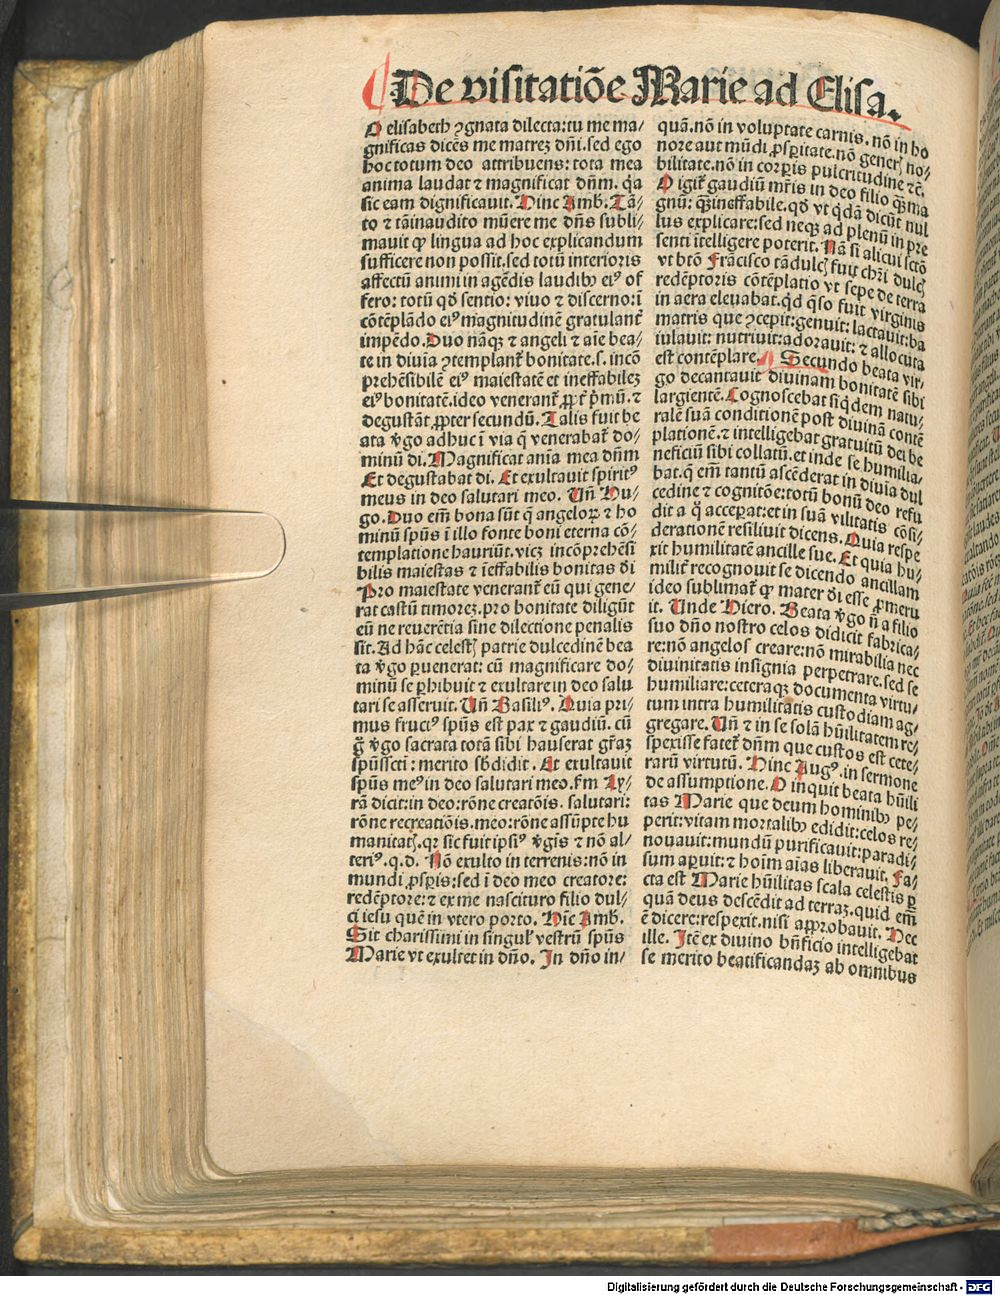 De visitatiōe Marie ad Elisa.
O elisabeth ꝯgnata dilecta: tu me ma/
gnificas dicēs me matreꝫ dn̄i. sed ego
hoc totum deo attribuens: tota mea
anima laudat ⁊ magnificat dn̄m. q̇a
sic eam dignificauit. Hinc Amb. Tā/
to ⁊ tā inaudito mūere me dn̄s subli/
mauit ꝙ lingua ad hoc explicandum
sufficere non possit. sed totū interioris
affectū animi in agēdis laudibꝰ eiꝰ of
fero: totū qd̄ sentio: viuo ⁊ discerno: ī
cōtēplādo eiꝰ magnitudinē gratulant̄
impēdo. Duo nāqꝫ ⁊ angeli ⁊ aīe bea/
te in diuīa ꝯtemplant̄ bonitate. s. incō
prehēsibilē eiꝰ maiestatē et ineffabileꝫ
eiꝰ bonitatē. ideo venerant̄ ꝓpt̄ pͥmū. ⁊
degustāt ꝓpter secundū. Talis fuit be
ata v̄go adhuc ī via q̄ venerabat̄ do/
minū di. Magnificat anīa mea dn̄m
Et degustabat di. Et exultauit spiritꝰ
meus in deo salutari meo. Un̄ Hu/
go. Duo em̄ bona sūt q̄ angeloꝝ ⁊ ho
minū spūs ī illo fonte boni eterna cō/
templatione hauriūt. vicꝫ incōprehēsi
bilis maiestas ⁊ īeffabilis bonitas di
Pro maiestate venerant̄ eū qui gene/
rat castū timoreꝫ. pro bonitate diligūt
eū ne reuerētia sine dilectione penalis
sit. Ad hāc celestꝭ patrie dulcedinē bea
ta v̄go ꝑuenerat: cū magnificare do/
minū se ꝑhibuit ⁊ exultare in deo salu
tari se asseruit. Un̄ Basiliꝰ. Quia pri/
mus fructꝰ spūs est pax ⁊ gaudiū. cū
g̊ v̄go sacrata totā sibi hauserat gr̄aꝫ
spūssctī: merito sb̄didit. Et exultauit
spūs meꝰ in deo salutari meo. fm Ly/
rā dicit: in deo: rōne creatōis. salutari:
rōne recreatiōis. meo: rōne assūpte hu
manitatꝭ. qꝛ sic fuit ipsiꝰ v̄gīs ⁊ nō al/
teriꝰ. q. d. Nō exulto in terrenis: nō in
mundi ꝓspīs: sed ī deo meo creatore:
redēptore: ⁊ ex me nascituro filio dul/
ci iesu quē in vtero porto. Hīc Amb.
Sit charissimi in singul̕ vestrū spūs
Marie vt exultet in dn̄o. In dn̄o in/
quā. nō in voluptate carnis. nō in ho
nore aut mūdi ꝓsꝑitate. nō generꝭ no/
bilitate. nō in corꝑis pulcritudine ⁊c̄.
O igit̄ gaudiū mr̄is in deo filio q̄ꝫ ma
gnū: q̄ꝫ ineffabile. qd̄ vt qͥdā dicūt nul
lus explicare: sed neqꝫ ad plenū in pre
senti ītelligere poterit. Nā si alicui sctō
vt btō Frācisco tā dulcꝭ fuit chr̄i dulcꝭ
redēptoris cōtēplatio vt sepe de terra
in aera eleuabat̄. qd̄ q̄so fuit virginis
matris que ꝯcepit: genuit: lactauit: ba
iulauit: nutriuit: adorauit: ⁊ allocuta
est contēplare. Secundo beata vir/
go decantauit diuinam bonitatē sibi
largientē. Cognoscebat siqͥdem natu/
ralē suā conditionē post diuinā contē
plationē. ⁊ intelligebat gratuitū dei be
neficiū sibi collatū. et inde se humilia/
bat. q̄ em̄ tantū ascēderat in diuīa dul
cedine ⁊ cognitōe: totū bonū deo refu
dit a q̊ acceꝑat: et in suā vilitatis cōsi/
derationē resiliuit dicens. Quia respe
xit humilitatē ancille sue. Et quia hu/
milit̄ recognouit se dicendo ancillam
ideo sublimat̄ ꝙ mater di esse ꝓmeru
it. Unde Hiero. Beata v̄go n̄ a filio
suo dn̄o nostro celos didicit fabrica/
re: nō angelos creare: nō mirabilia nec
diuinitatis insignia perpetrare. sed se
humiliare: ceteraqꝫ documenta virtu/
tum intra humilitatis custodiam ag/
gregare. Un̄ ⁊ in se solā hūilitatem re/
spexisse fatet̄ dn̄m que custos est cete/
rarū virtutū. Hinc Augꝰ. in sermone
de assumptione. O inquit beata hūili
tas Marie que deum hominibꝰ pe/
perit: vitam mortalibꝰ edidit: celos re/
nouauit: mundū purificauit: paradi/
sum aꝑuit: ⁊ hoīm aīas liberauit. Fa/
cta est Marie hūilitas scala celestis ꝑ
quā deus descēdit ad terraꝫ. quid em̄
ē dicere: respexit. nisi approbauit. Hec
ille. Itē ex diuino bn̄ficio intelligebat
se merito beatificandaꝫ ab omnibus
Digitalisierung gefördert durch die Deutsche Forschungsgemeinschaft - DFG